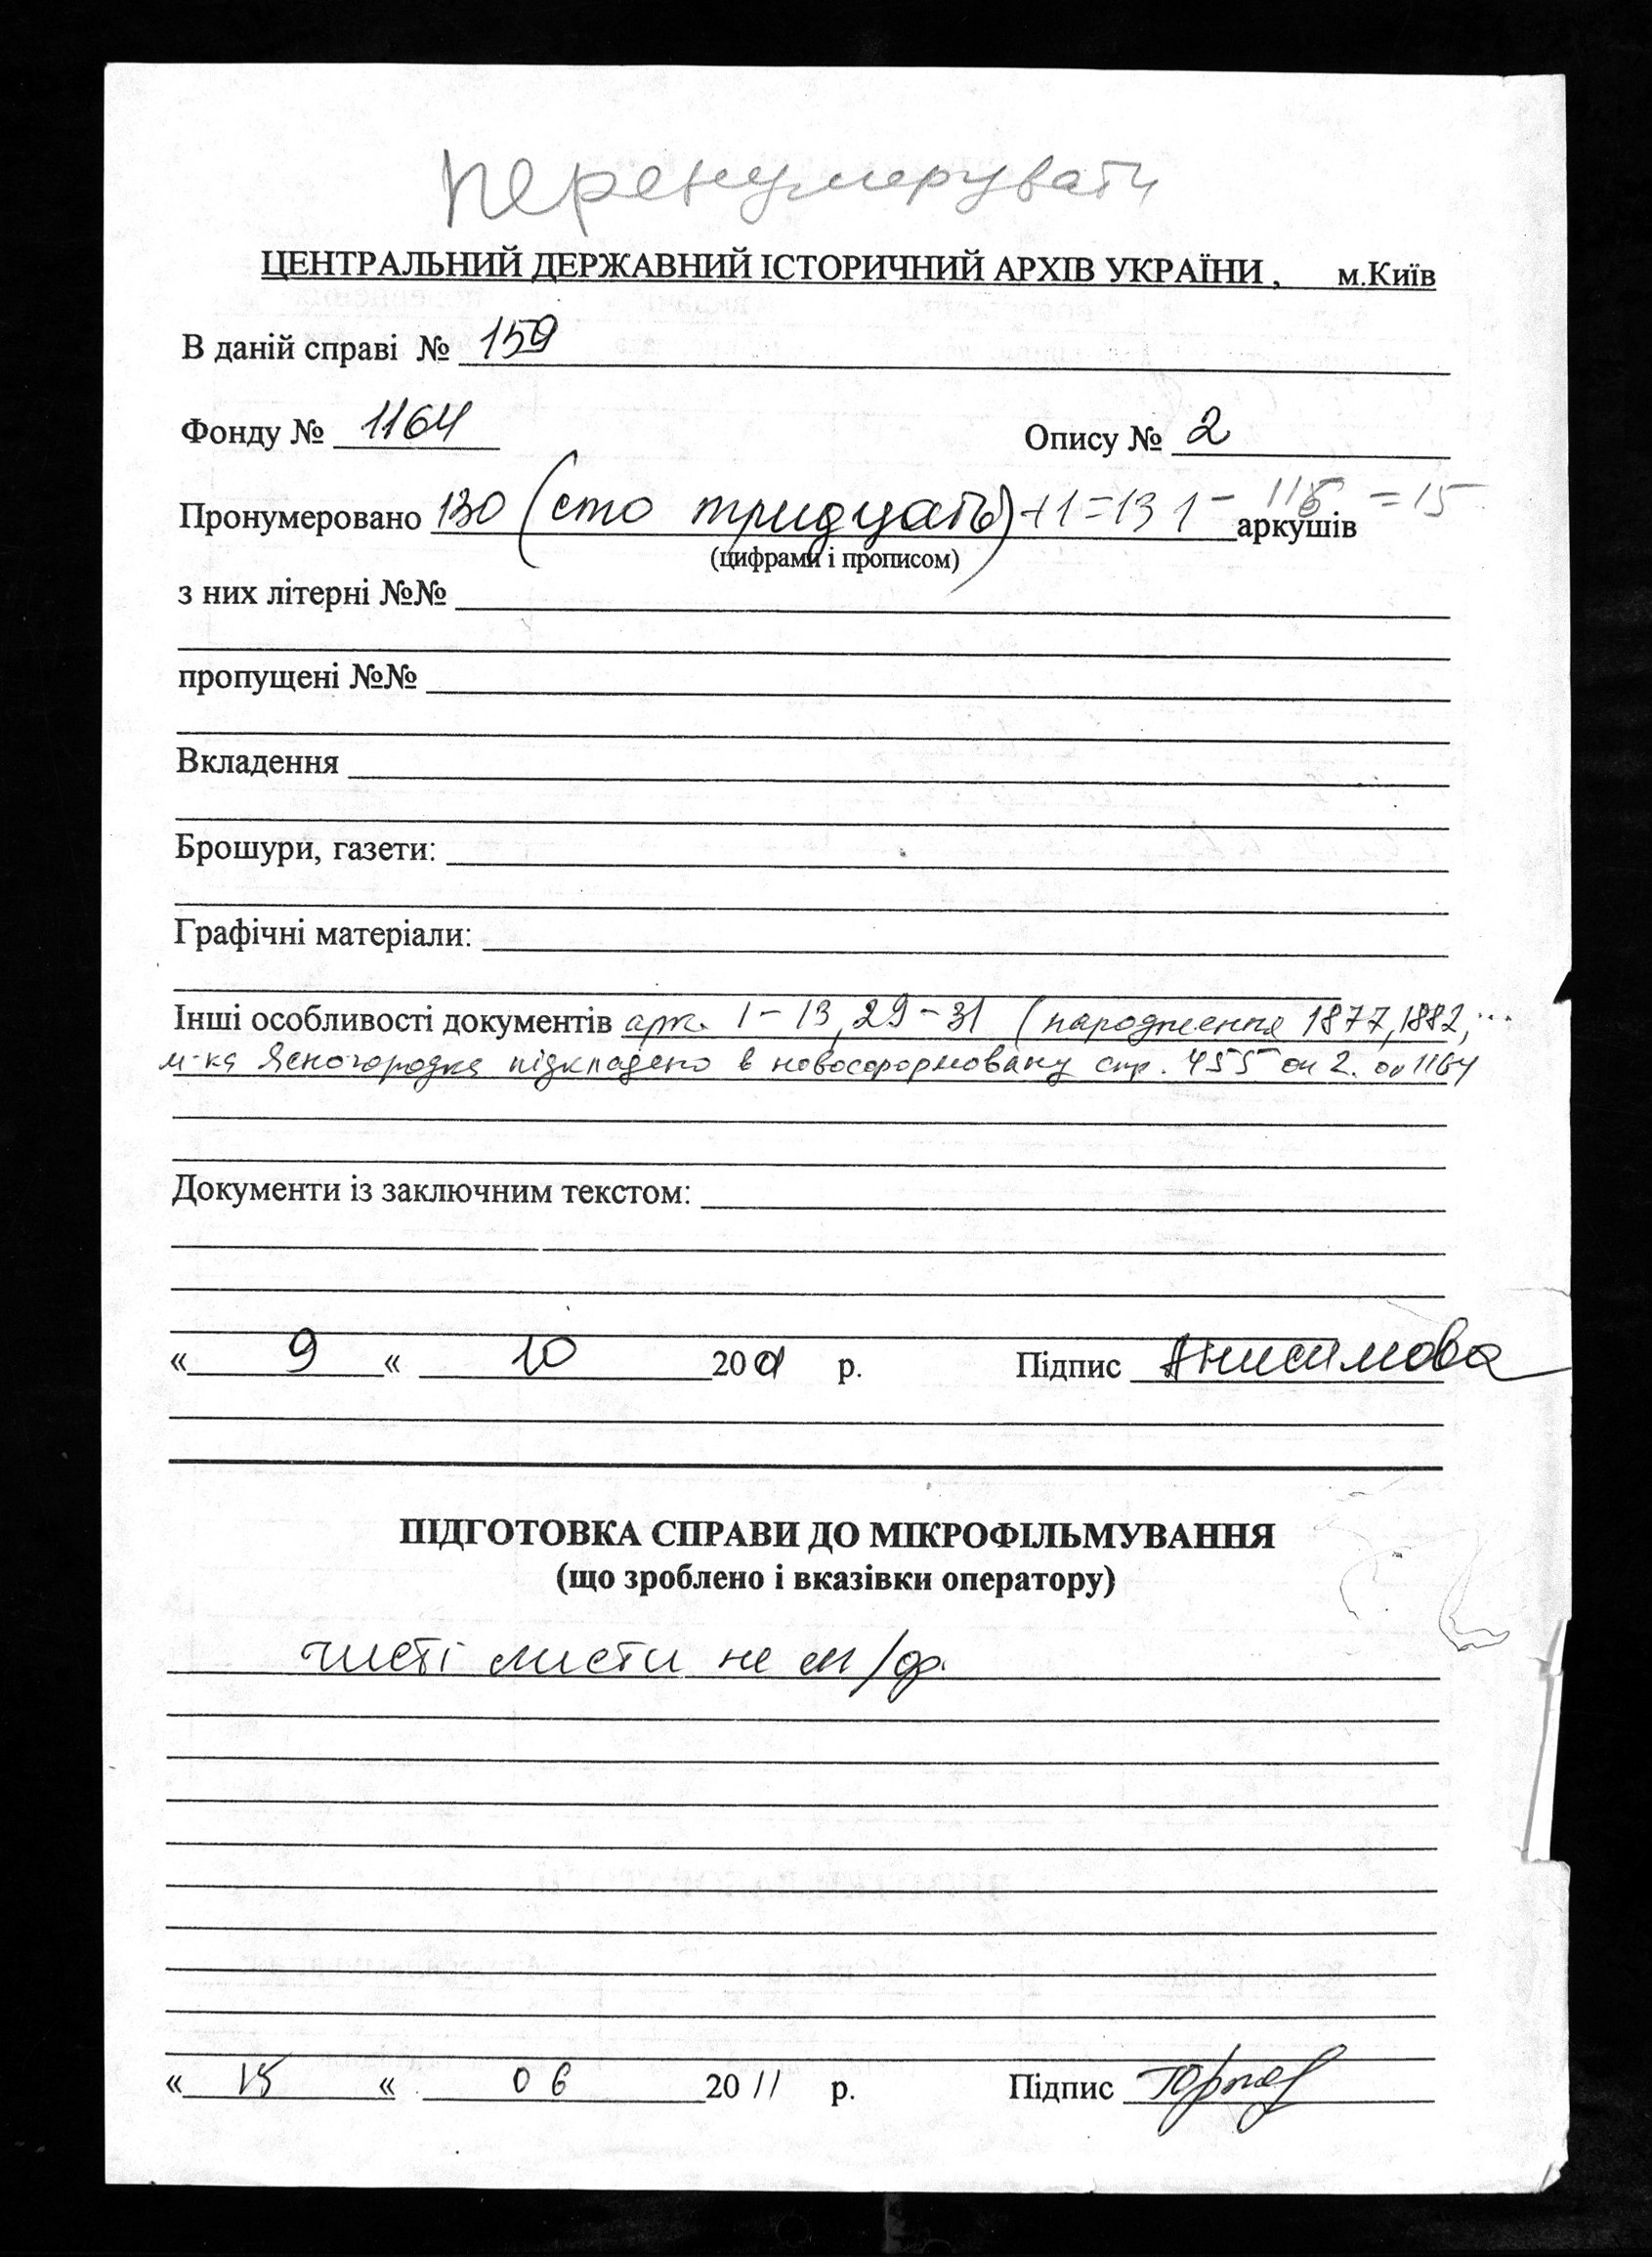 перенумерувати
ЦЕНТРАЛЬНИЙ ДЕРЖАВНИЙ ІСТОРИЧНИЙ АРХІВ УКРАЇНИ , м.Київ
В даній справі № 159
Фонду № 1164 Опису № 2
Пронумеровано 130 (сто тридцать) +1=131 - аркушів = 15
(цифрами і прописом)
з них літерні №№
пропущені №№
Вкладення
Брошури, газети:
Графічні матеріали:
Інші особливості документів арк. 1-13, 29-31 (народження 1877, 1882, ...
м-ка Ясногородка підкладено в новосформовану спр. 455 оп 2. ф 1164
Документи із заключним текстом:
« 9 « 10 20 р. Підпис Анисимова
ПІДГОТОВКА СПРАВИ ДО МІКРОФІЛЬМУВАННЯ
(що зроблено і вказівки оператору)
чисті листи не м/ф.
« 15 « 06 2011 р. Підпис